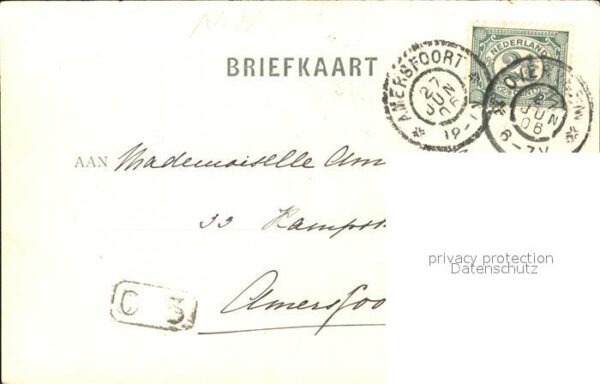 BRIEFKAART
AMERSFOORT
27
JUN
06
NEDERLAND
2½
JUN
06
6-7V
AAN Mademoiselle
33
Amersfoo
privacy protection
Datenschutz
C 3